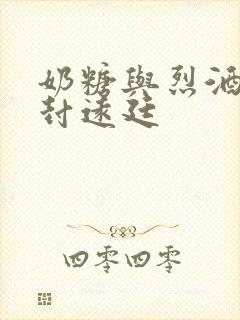 奶糖與烈酒
封遠廷
四零四零